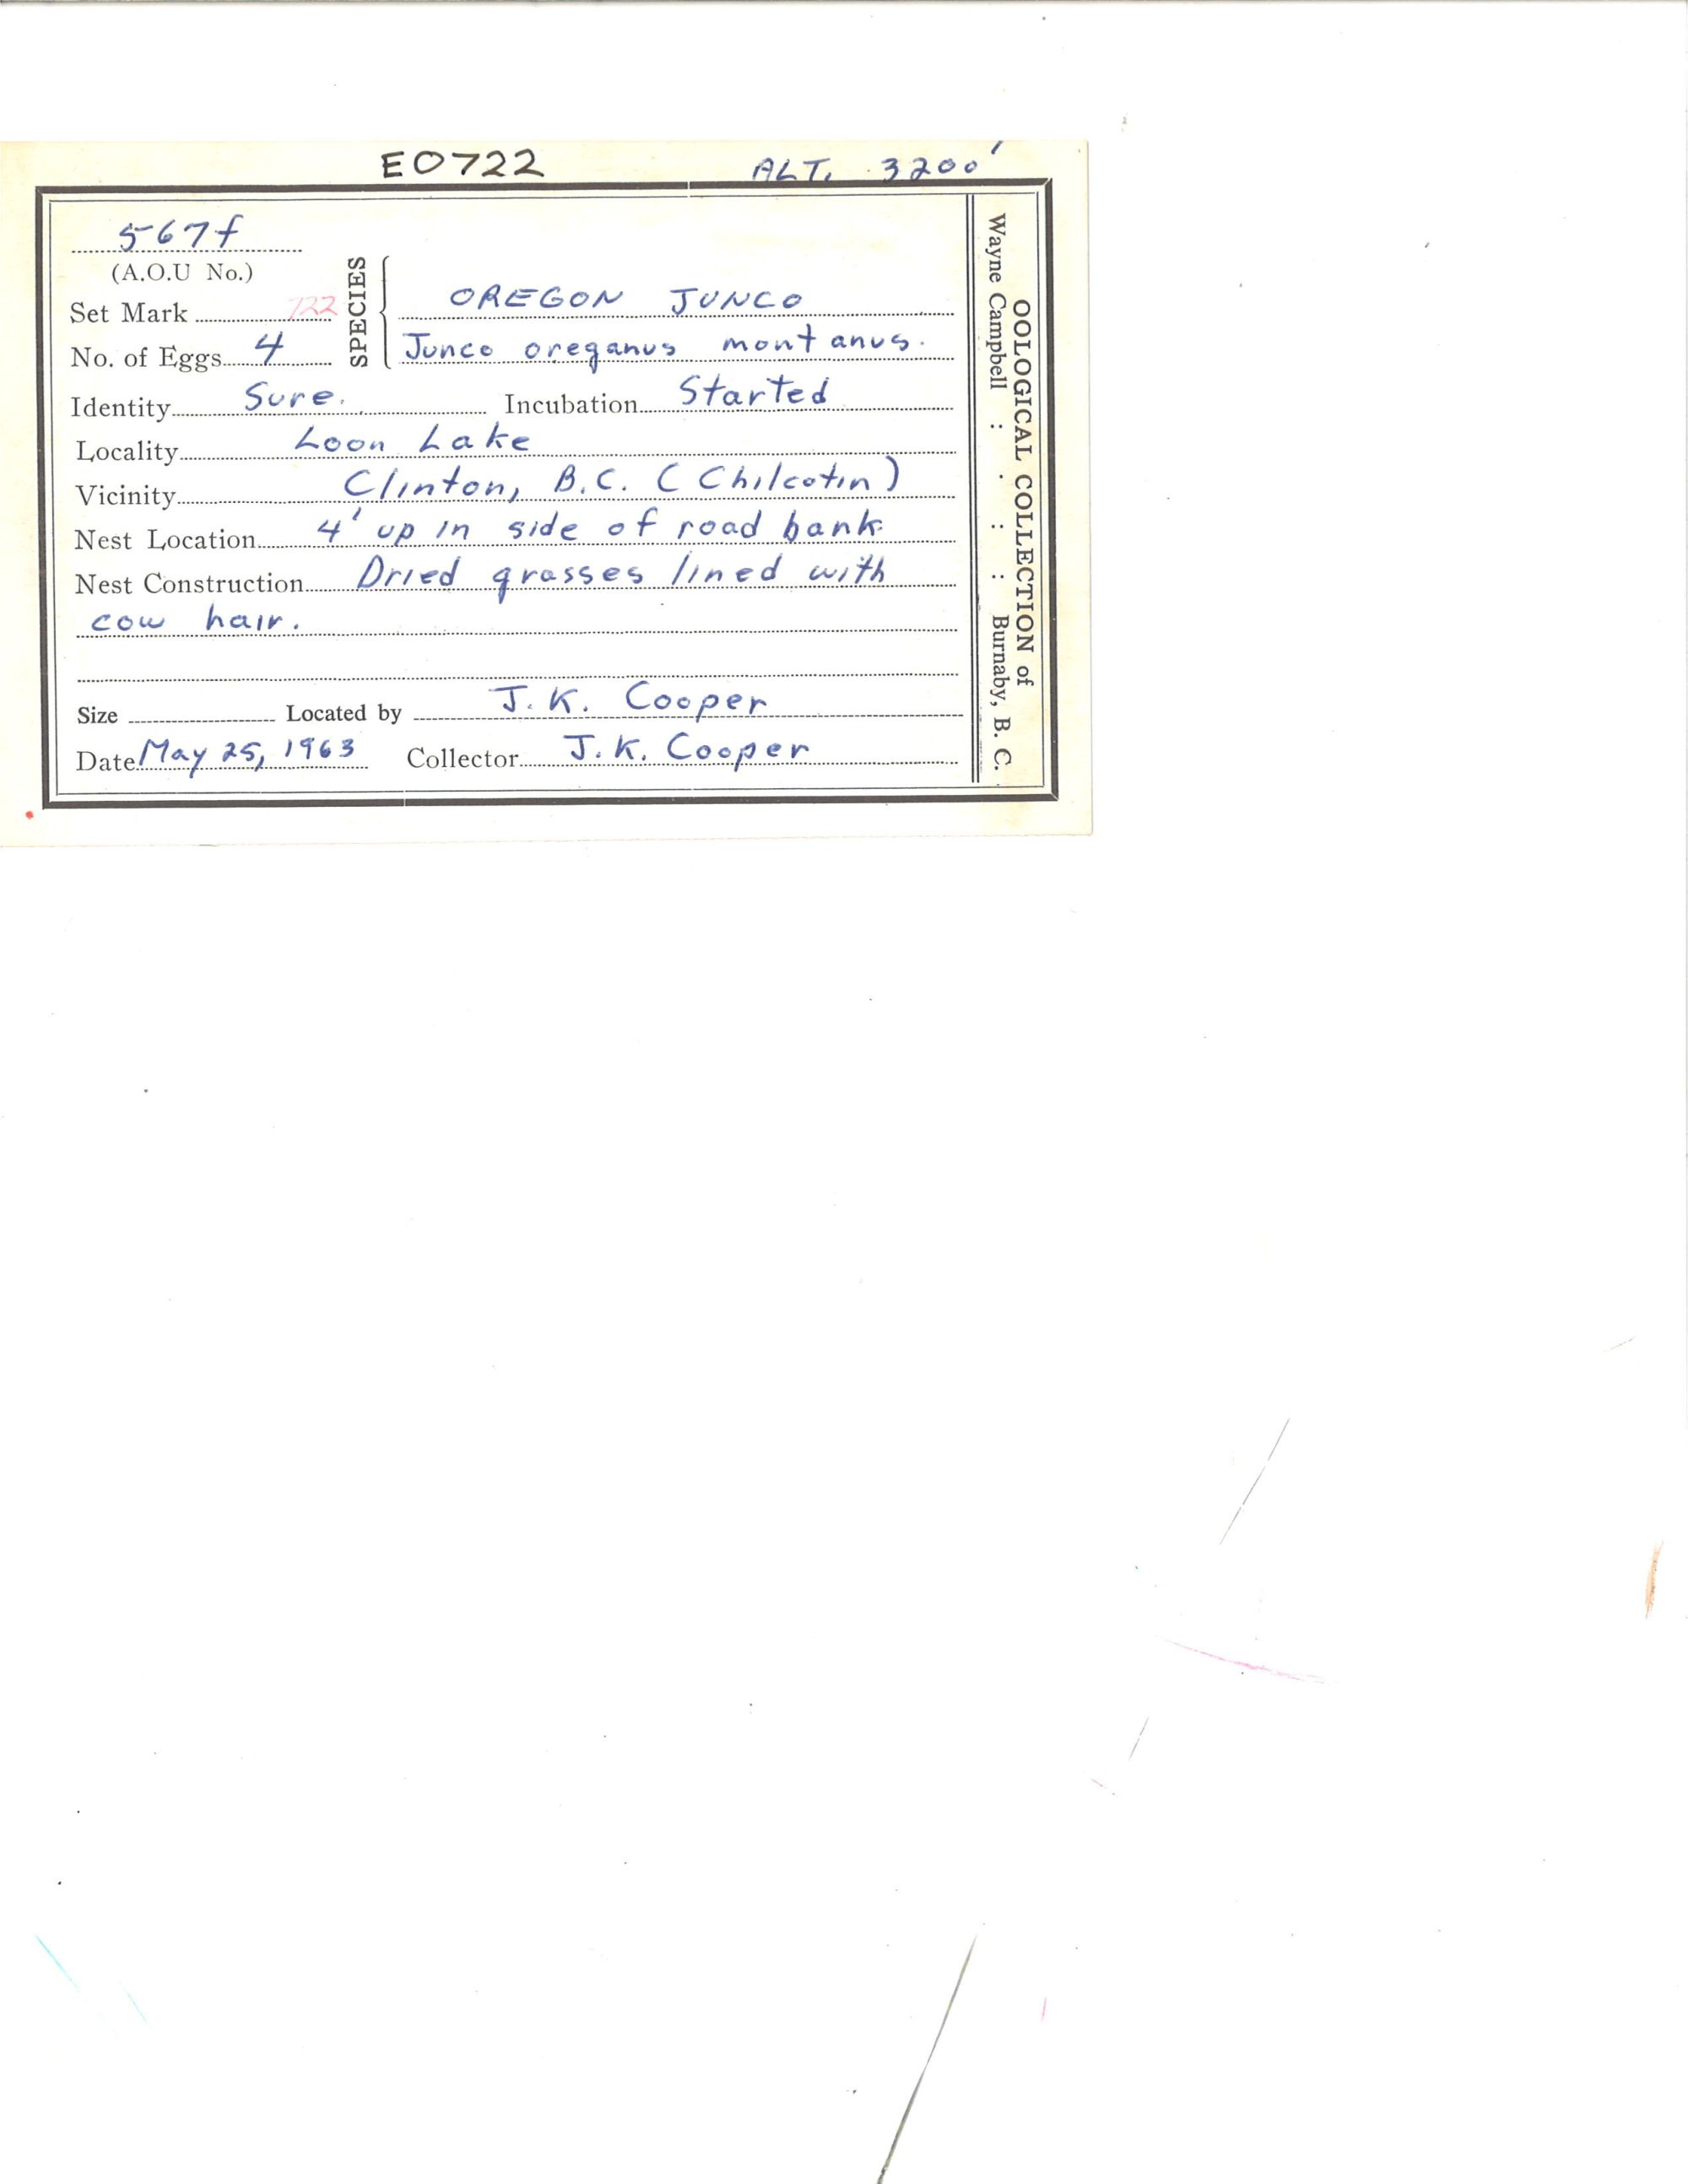 E0722 ALT. 3200'
567f
(A.O.U No.)
Set Mark 722
No. of Eggs 4
SPECIES
OREGON JUNCO
Junco oreganus montanus.
Identity Sure. Incubation Started
Locality Loon Lake
Vicinity Clinton, B.C. (Chilcotin)
Nest Location 4' up in side of road bank
Nest Construction Dried grasses lined with
cow hair.
Size Located by J.K. Cooper
Date May 25, 1963 Collector J.K. Cooper
OOLOGICAL COLLECTION of
Wayne Campbell : : : : Burnaby, B. C.